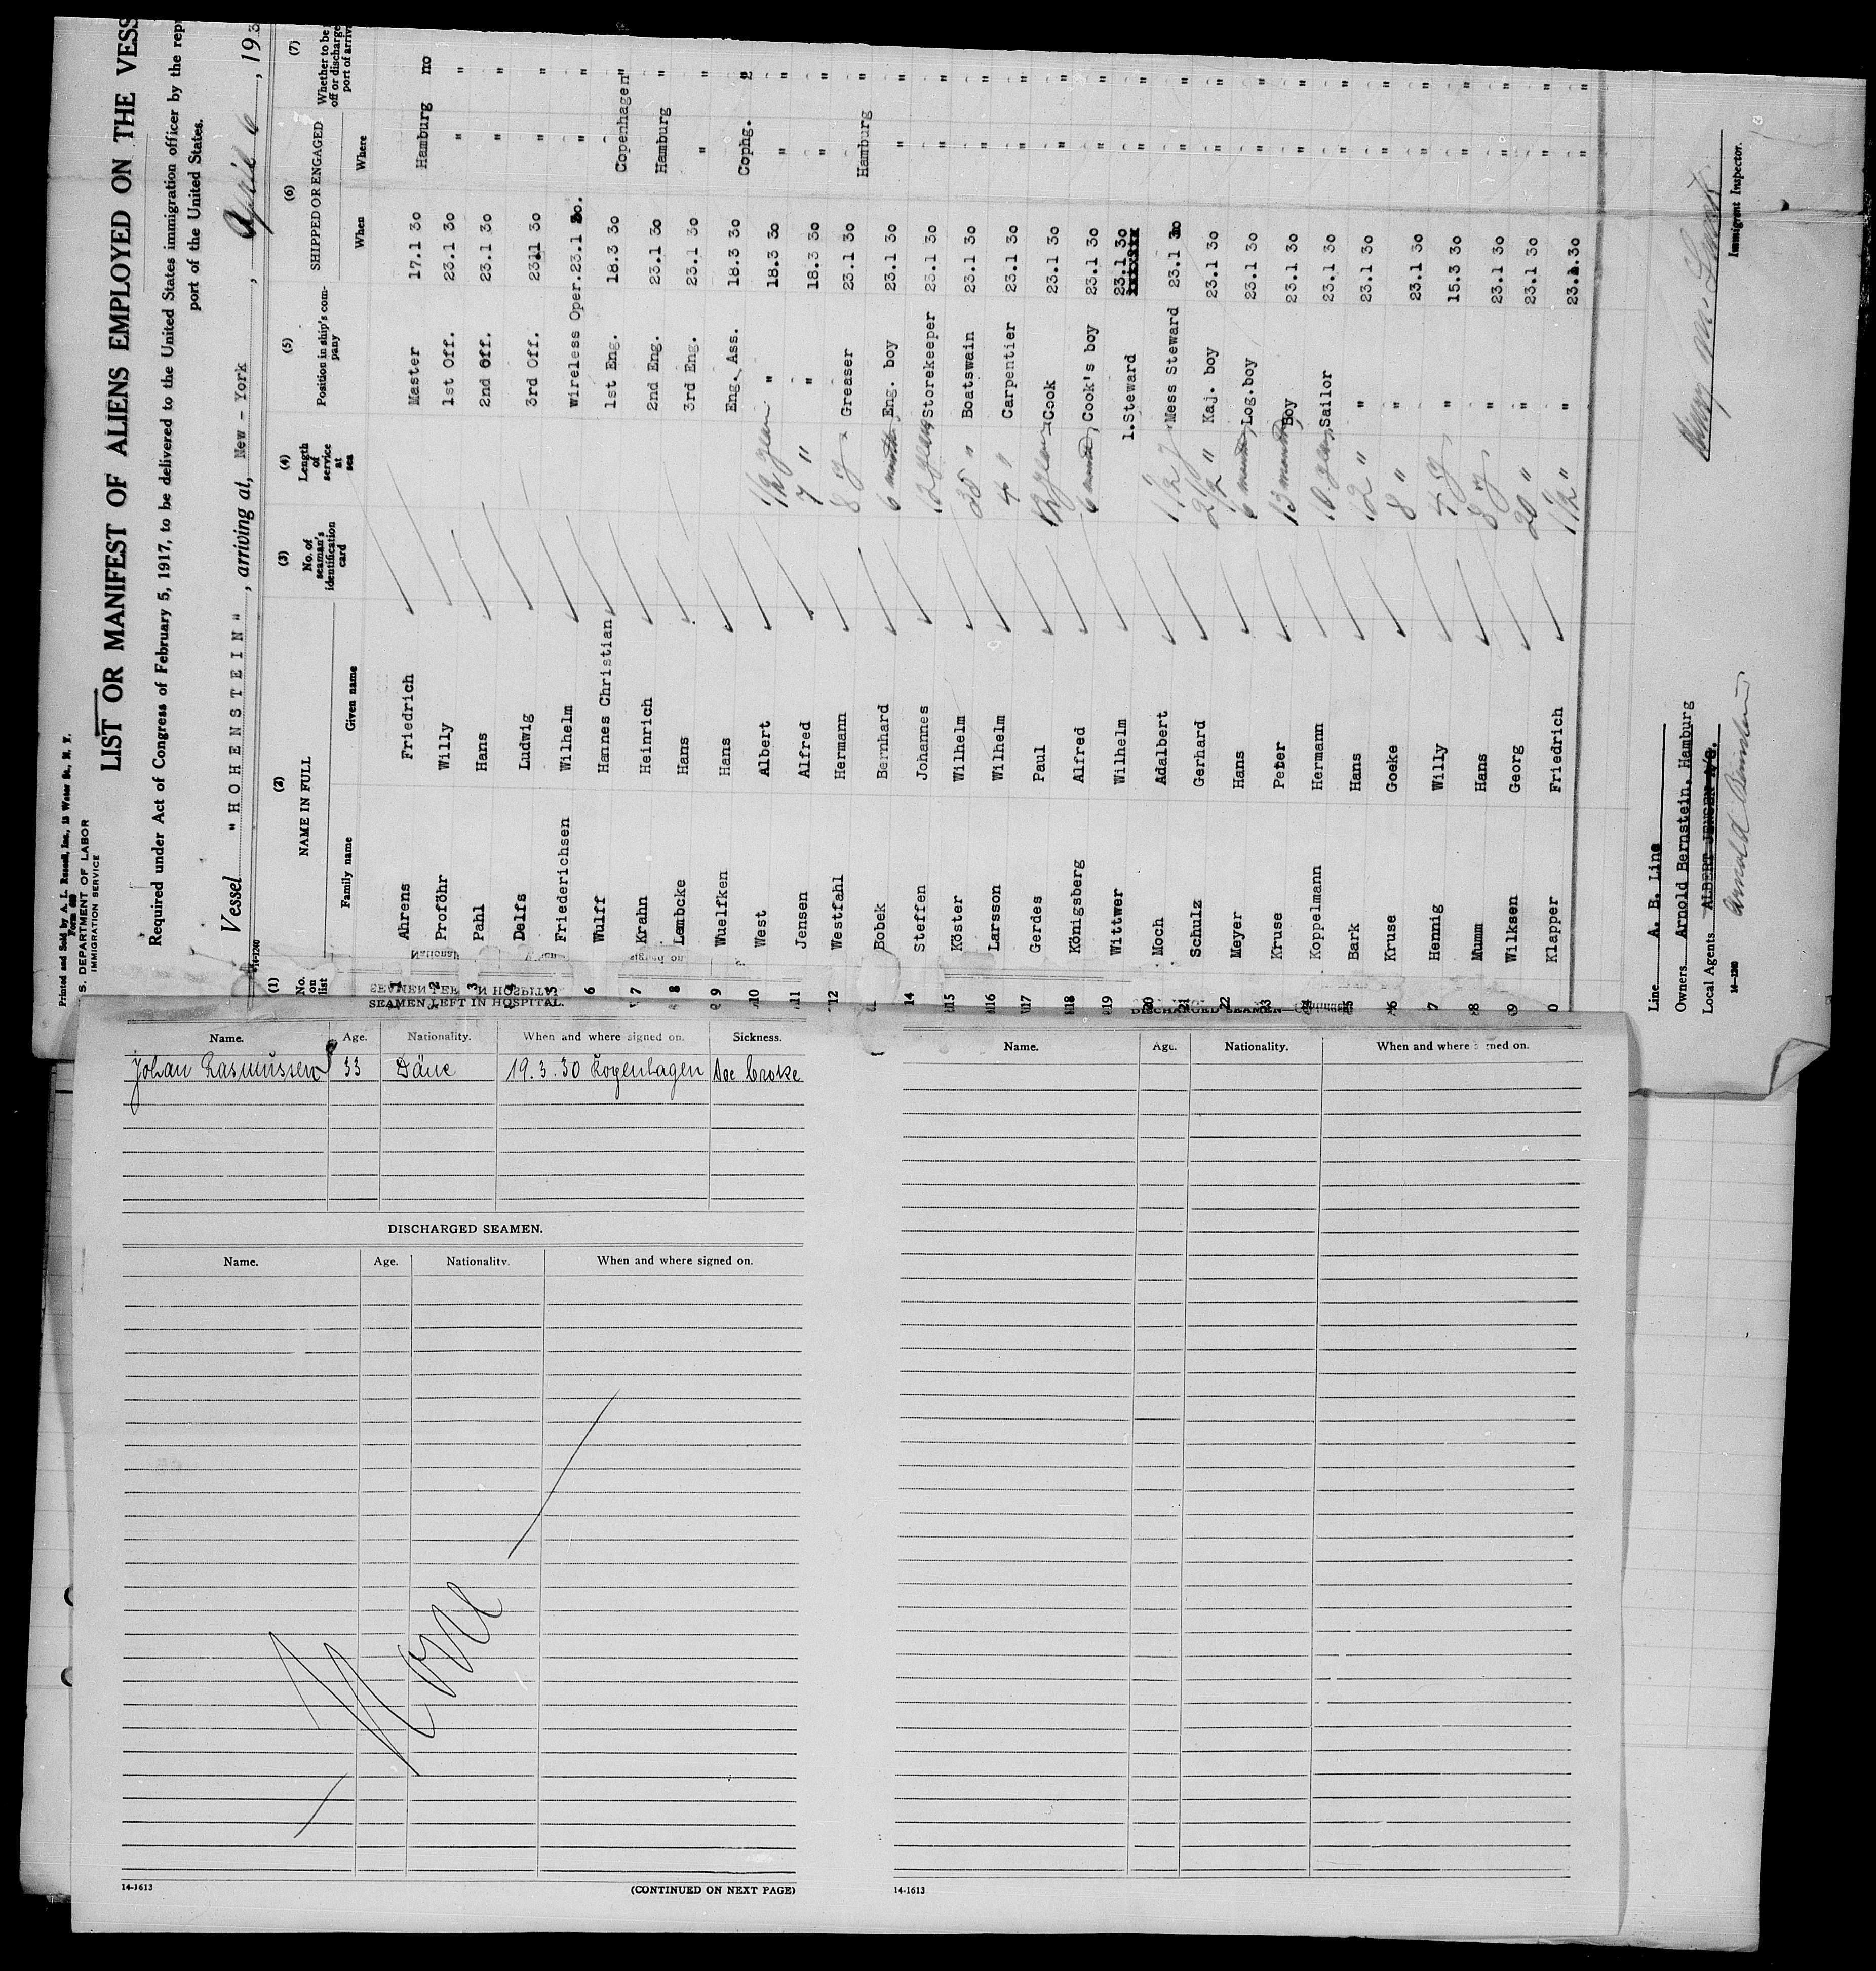 Printed and Sold by A. L. Russell, Inc., 13 Water St., N. Y.
Form 680
S. DEPARTMENT OF LABOR
IMMIGRATION SERVICE
LIST OR MANIFEST OF ALIENS EMPLOYED ON THE VESS
Required under Act of Congress of February 5, 1917, to be delivered to the United States immigration officer by the rep
port of the United States.
Vessel "HOHENSTEIN", arriving at, New - York, April 6, 193
(1) (2) (3) (4) (5) (6) (7)
No. on list NAME IN FULL No. of seaman's identification card Length of service at sea Position in ship's company SHIPPED OR ENGAGED Whether to be off or discharge port of arriv
Family name Given name When Where
1 Ahrens Friedrich Master 17.1 30 Hamburg no
2 Proföhr Willy 1st Off. 23.1 30 " "
3 Pahl Hans 2nd Off. 23.1 30 " "
4 Delfs Ludwig 3rd Off. 23.1 30 " "
5 Friederichsen Wilhelm Wireless Oper. 23.1 30. " "
6 Wulff Hannes Christian 1st Eng. 18.3 30 Copenhagen "
7 Krahn Heinrich 2nd Eng. 23.1 30 Hamburg "
8 Lembcke Hans 3rd Eng. 23.1 30 " "
9 Wuelfken Hans Eng. Ass. 18.3 30 Cophg. "
10 West Albert 1/2 year " 18.3 30 " "
11 Jensen Alfred 7 " " 18.3 30 " "
12 Westfahl Hermann 8 y Greaser 23.1 30 Hamburg "
Bobek Bernhard 6 month Eng. boy 23.1 30 " "
14 Steffen Johannes 12 years Storekeeper 23.1 30 " "
15 Köster Wilhelm 30 " Boatswain 23.1 30 " "
16 Larsson Wilhelm 4 " Carpentier 23.1 30 " "
17 Gerdes Paul Cook 23.1 30 " "
18 Königsberg Alfred 6 month Cook's boy 23.1 30 " "
19 Wittwer Wilhelm 1.Steward 23.1 30 " "
20 Moch Adalbert 1 1/2 y Mess Steward 23.1 30 " "
21 Schulz Gerhard 2 1/2 " Kaj. boy 23.1 30 " "
22 Meyer Hans 6 month Log.boy 23.1 30 " "
23 Kruse Peter 13 month Boy 23.1 30 " "
24 Koppelmann Hermann 10 years Sailor 23.1 30 " "
25 Bark Hans 12 " " 23.1 30 " "
6 Kruse Goeke 8 " " 23.1 30 " "
7 Hennig Willy 4 y " 15.3 30 " "
8 Mumm Hans 3 y " 23.1 30 " "
9 Wilksen Georg 20 " " 23.1 30 " "
0 Klapper Friedrich 1 1/2 " " 23.1.30 " "
Line A. B. Line
Owners Arnold Bernstein, Hamburg
Local Agents ALBERT JENSEN A/S.
Arnold Bernstein
Immigrant Inspector.
14-1240
SEAMEN LEFT IN HOSPITAL.
Name. Age. Nationality. When and where signed on. Sickness.
Johan Rasmussen 33 Däne 19.3.30 Kopenhagen
DISCHARGED SEAMEN.
Name. Age. Nationality. When and where signed on.
None
14-1613
(CONTINUED ON NEXT PAGE)
DISCHARGED SEAMEN—Continued
Name. Age. Nationality. When and where signed on.
14-1613